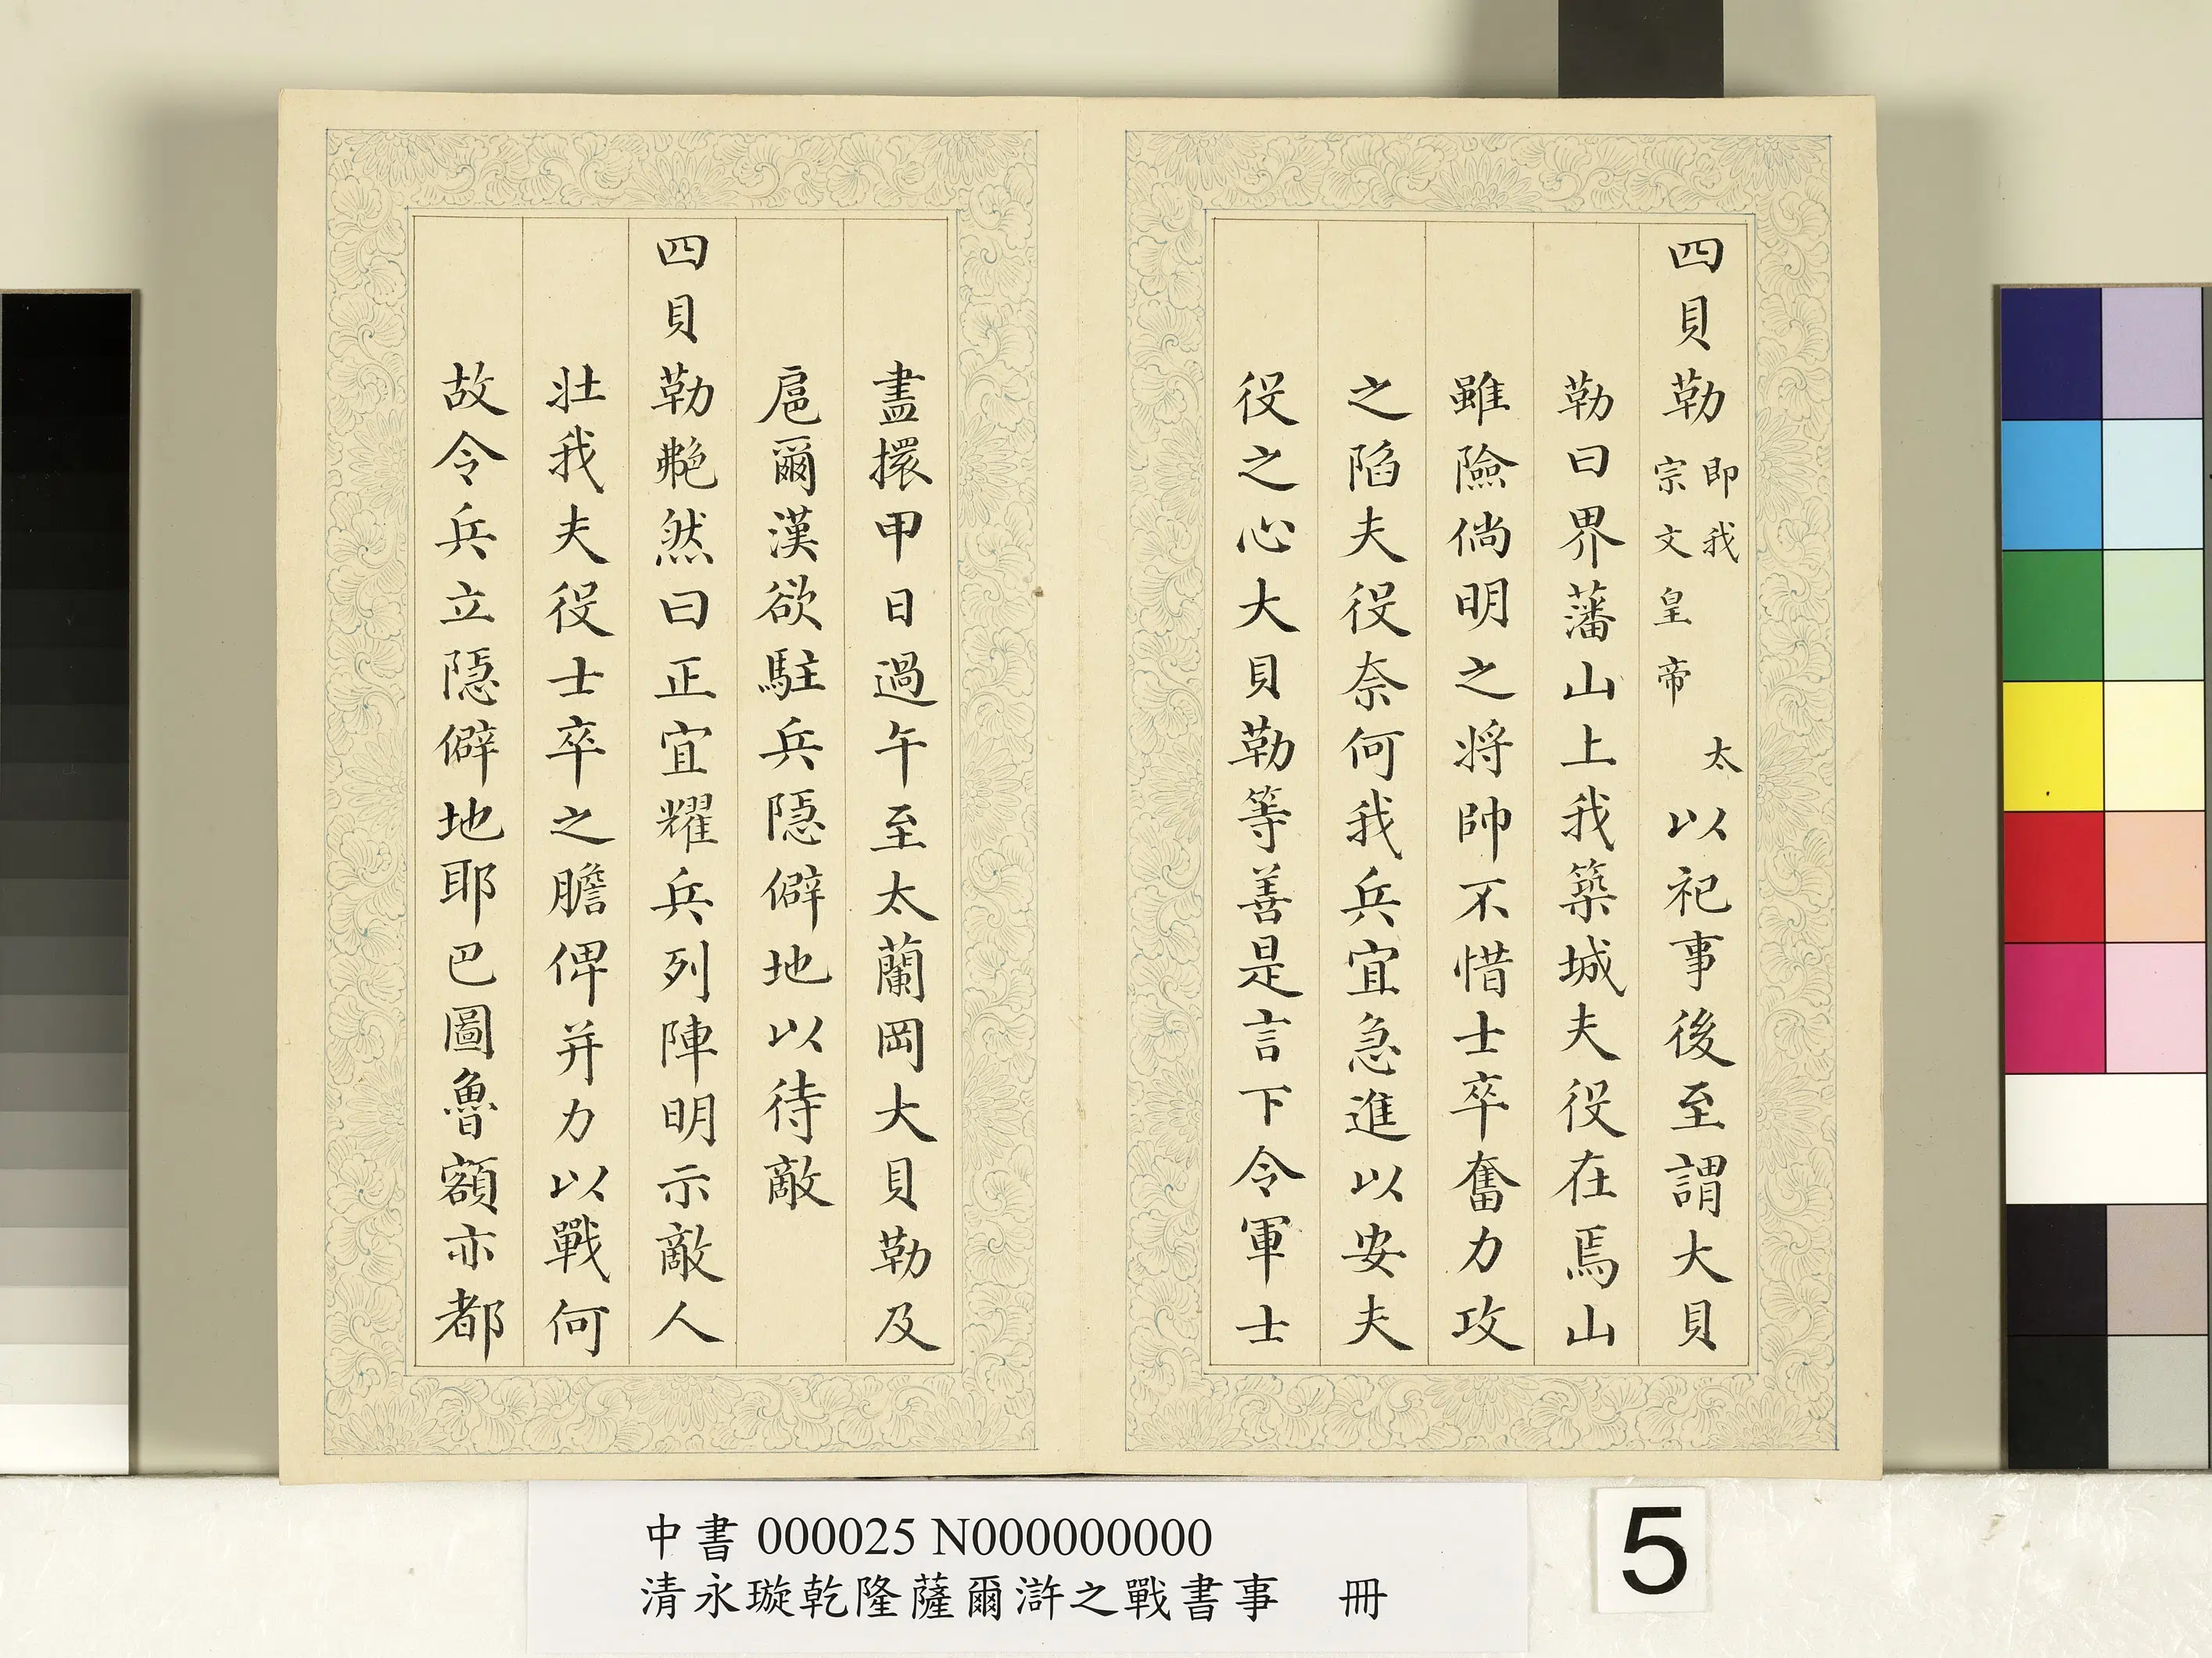 四貝勒即我太宗文皇帝以祀事後至謂大貝
勒曰界藩山上我築城夫役在焉山
雖險倘明之將帥不惜士卒奮力攻
之陷夫役奈何我兵宜急進以安夫
役之心大貝勒等善是言下令軍士
盡擐甲日過午至太蘭岡大貝勒及
扈爾漢欲駐兵隱僻地以待敵
四貝勒艴然曰正宜耀兵列陣明示敵人
壯我夫役士卒之膽俾并力以戰何
故令兵立隱僻地耶巴圖魯額亦都
中書 000025 N000000000
清永璇乾隆薩爾滸之戰書事 冊
5